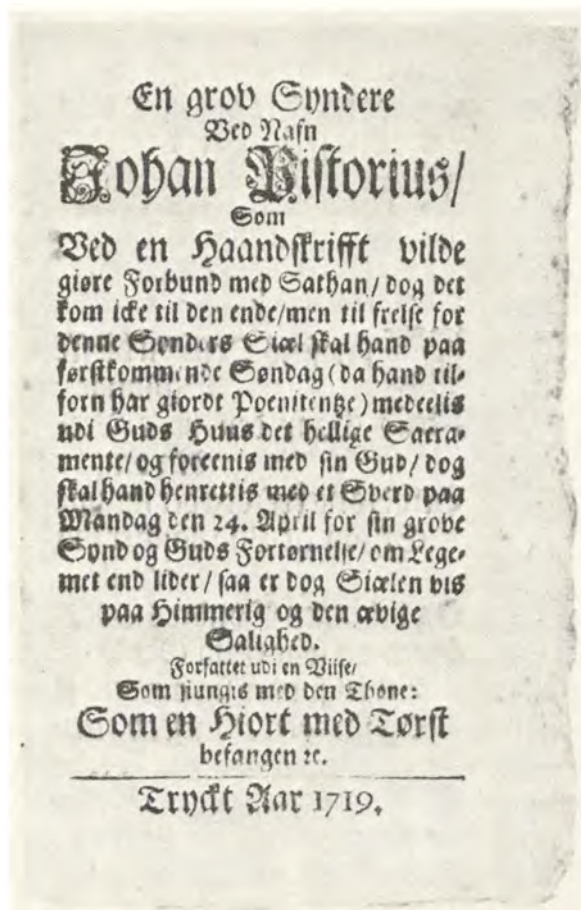 En grov Syndere
Ved Nafn
Johan Pistorius/
Som
Ved en Haandskrifft vilde
giøre Forbund med Sathan/ dog det
kom icke til den ende/men til frelse for
denne Synders Siæl skal hand paa
førstkommende Søndag (da hand til-
forn har giordt Poenitentze) medeelis
udi Guds Huus det hellige Sacra-
mente/ og foreenis med sin Gud/ dog
skal hand henrettis med et Sverd paa
Mandag den 24. April for sin grove
Synd og Guds Fortørnelse/ om Lege-
met end lider/ saa er dog Siælen vis
paa Himmerig og den ævige
Salighed.
Forfattet udi en Viise/
Som siungis med den Thone:
Som en Hiort med Tørst
befangen ꝛc.
Tryckt Aar 1719.